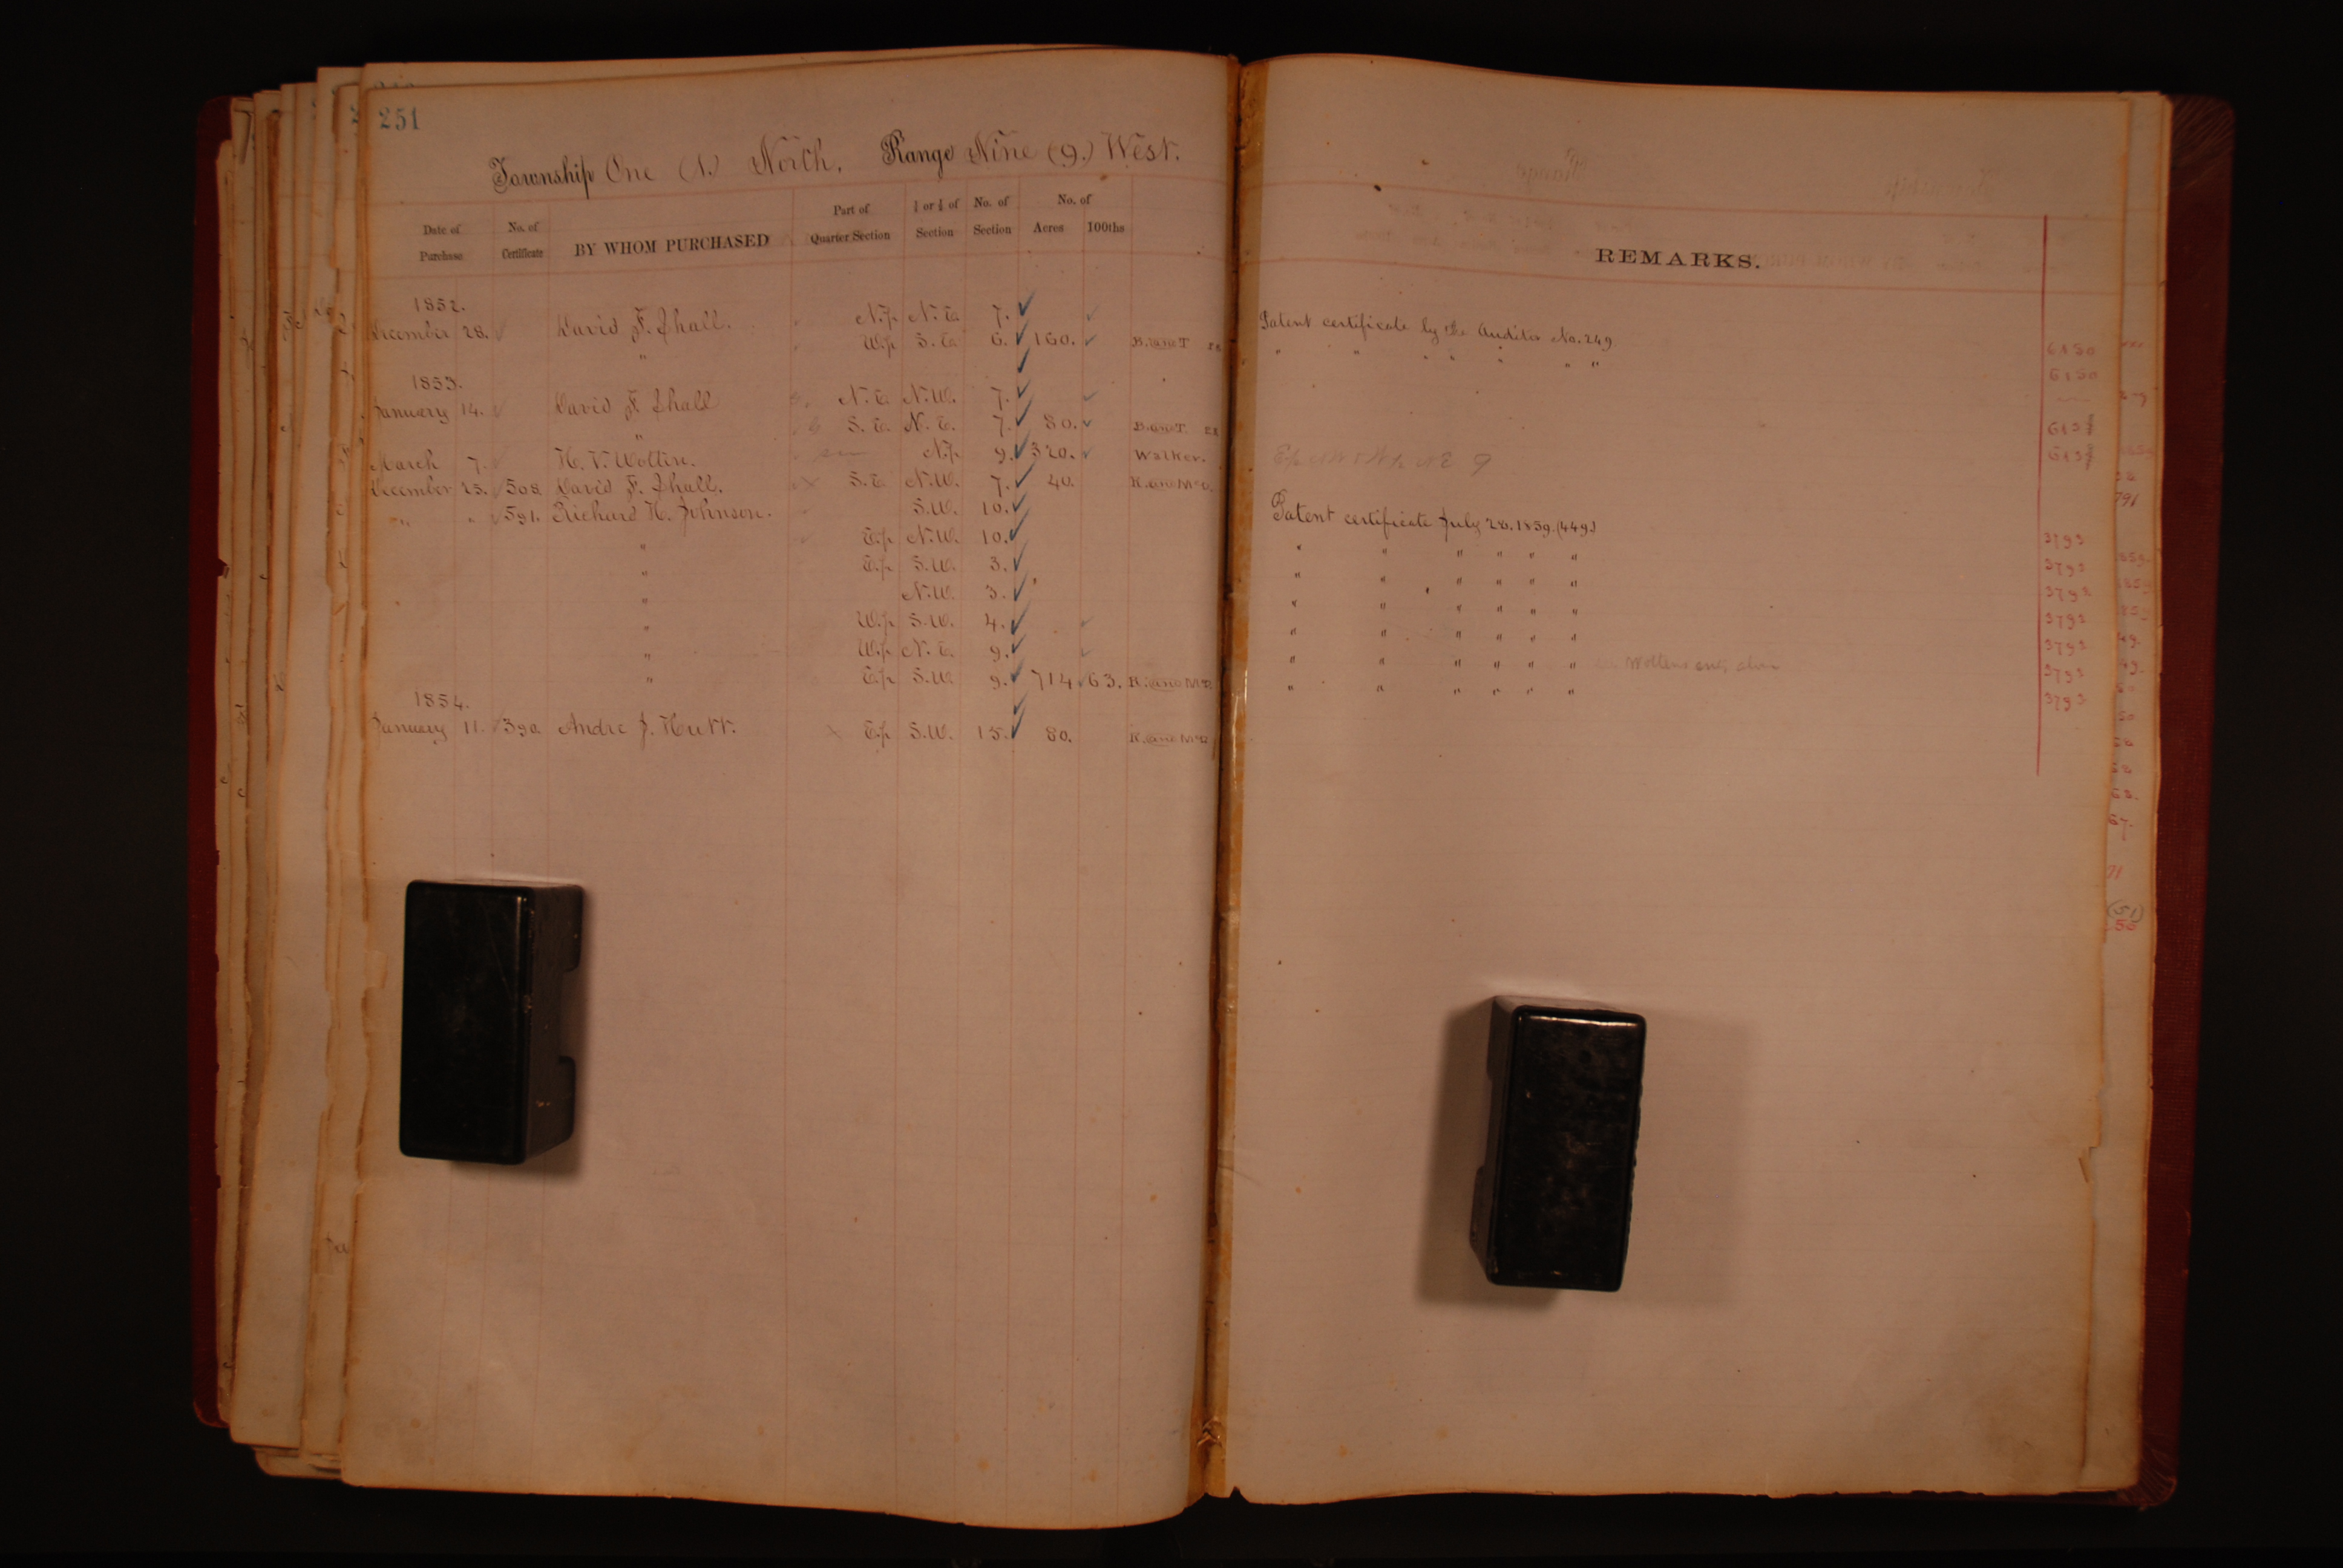 251
Township One (1.) North, Range Nine (9.) West.
Date of Purchase No. of Certificate BY WHOM PURCHASED Part of Quarter Section ½ or ¼ of Section No. of Section No. of Acres 100ths
REMARKS.
1852.
December 28. David F. Zhall. N.½ N.E. 7. Patent certificate by the Auditor No. 249
" W.½ S.E. 6. 160. " " " " " " " 6150
6150
1853.
January 14. David F. Zhall N.E. N.W. 7.
" S.E. N.E. 7. 80.
March 7. H. T. Wollin. N.½ 9. 320. Walker. 9
December 25. 508. David F. Zhall. S.E. N.W. 7. 40.
" " 591. Richard H. Johnson. S.W. 10. Patent certificate July 28, 1859. (449.)
" E.½ N.W. 10. " " " " " " 3793
" E.½ S.W. 3. " " " " " " 3793
" N.W. 3. " " " " " " 3793
" W.½ S.W. 4. " " " " " " 3793
" W.½ N.E. 9. " " " " " " 3793
" E.½ S.W. 9. 714. 63. " " " " " " 3793
3793
1854.
January 11. 390. Andre J. Hutt. E.½ S.W. 15. 80.